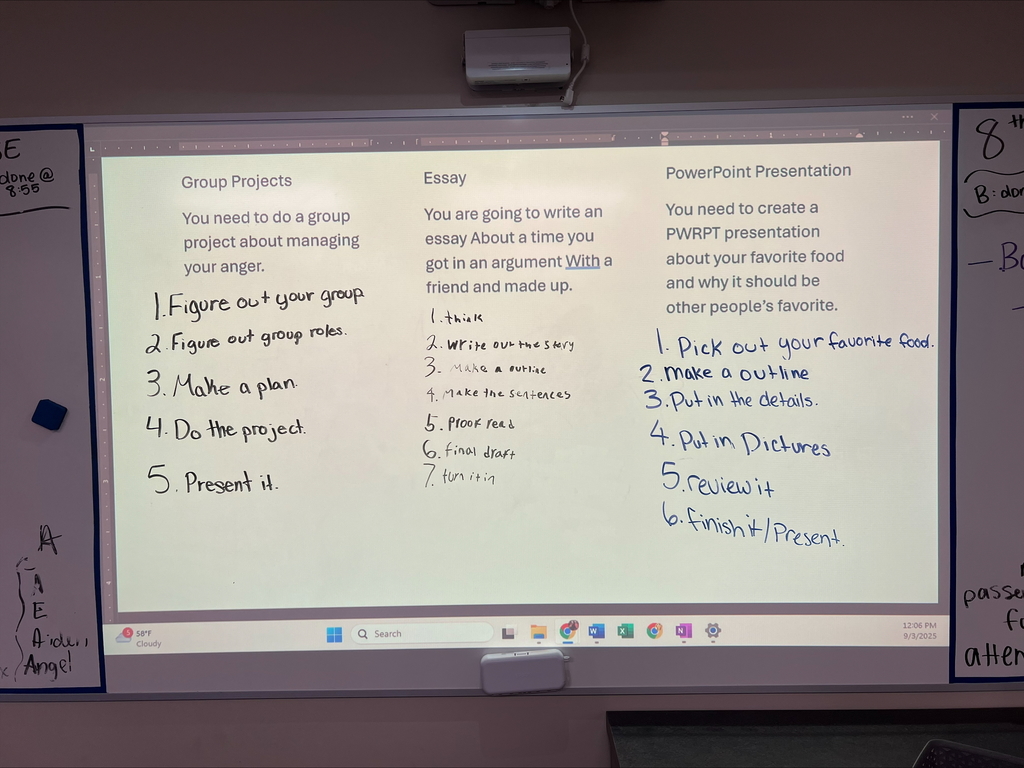 done @
8:55
A
A
E
Aiden,
Angel
Group Projects
You need to do a group
project about managing
your anger.
1. Figure out your group
2. Figure out group roles.
3. Make a plan.
4. Do the project.
5. Present it.
Essay
You are going to write an
essay About a time you
got in an argument With a
friend and made up.
1. think
2. Write out the story
3. Make a outline
4. Make the sentences
5. Proof read
6. final draft
7. turn it in
PowerPoint Presentation
You need to create a
PWRPT presentation
about your favorite food
and why it should be
other people's favorite.
1. Pick out your favorite food.
2. make a outline
3. Put in the details.
4. Put in Pictures
5. review it
6. finish it/Present.
58°F
Cloudy
Search
12:06 PM
9/3/2025
8th
B: don
- Bo
passe
fo
atten